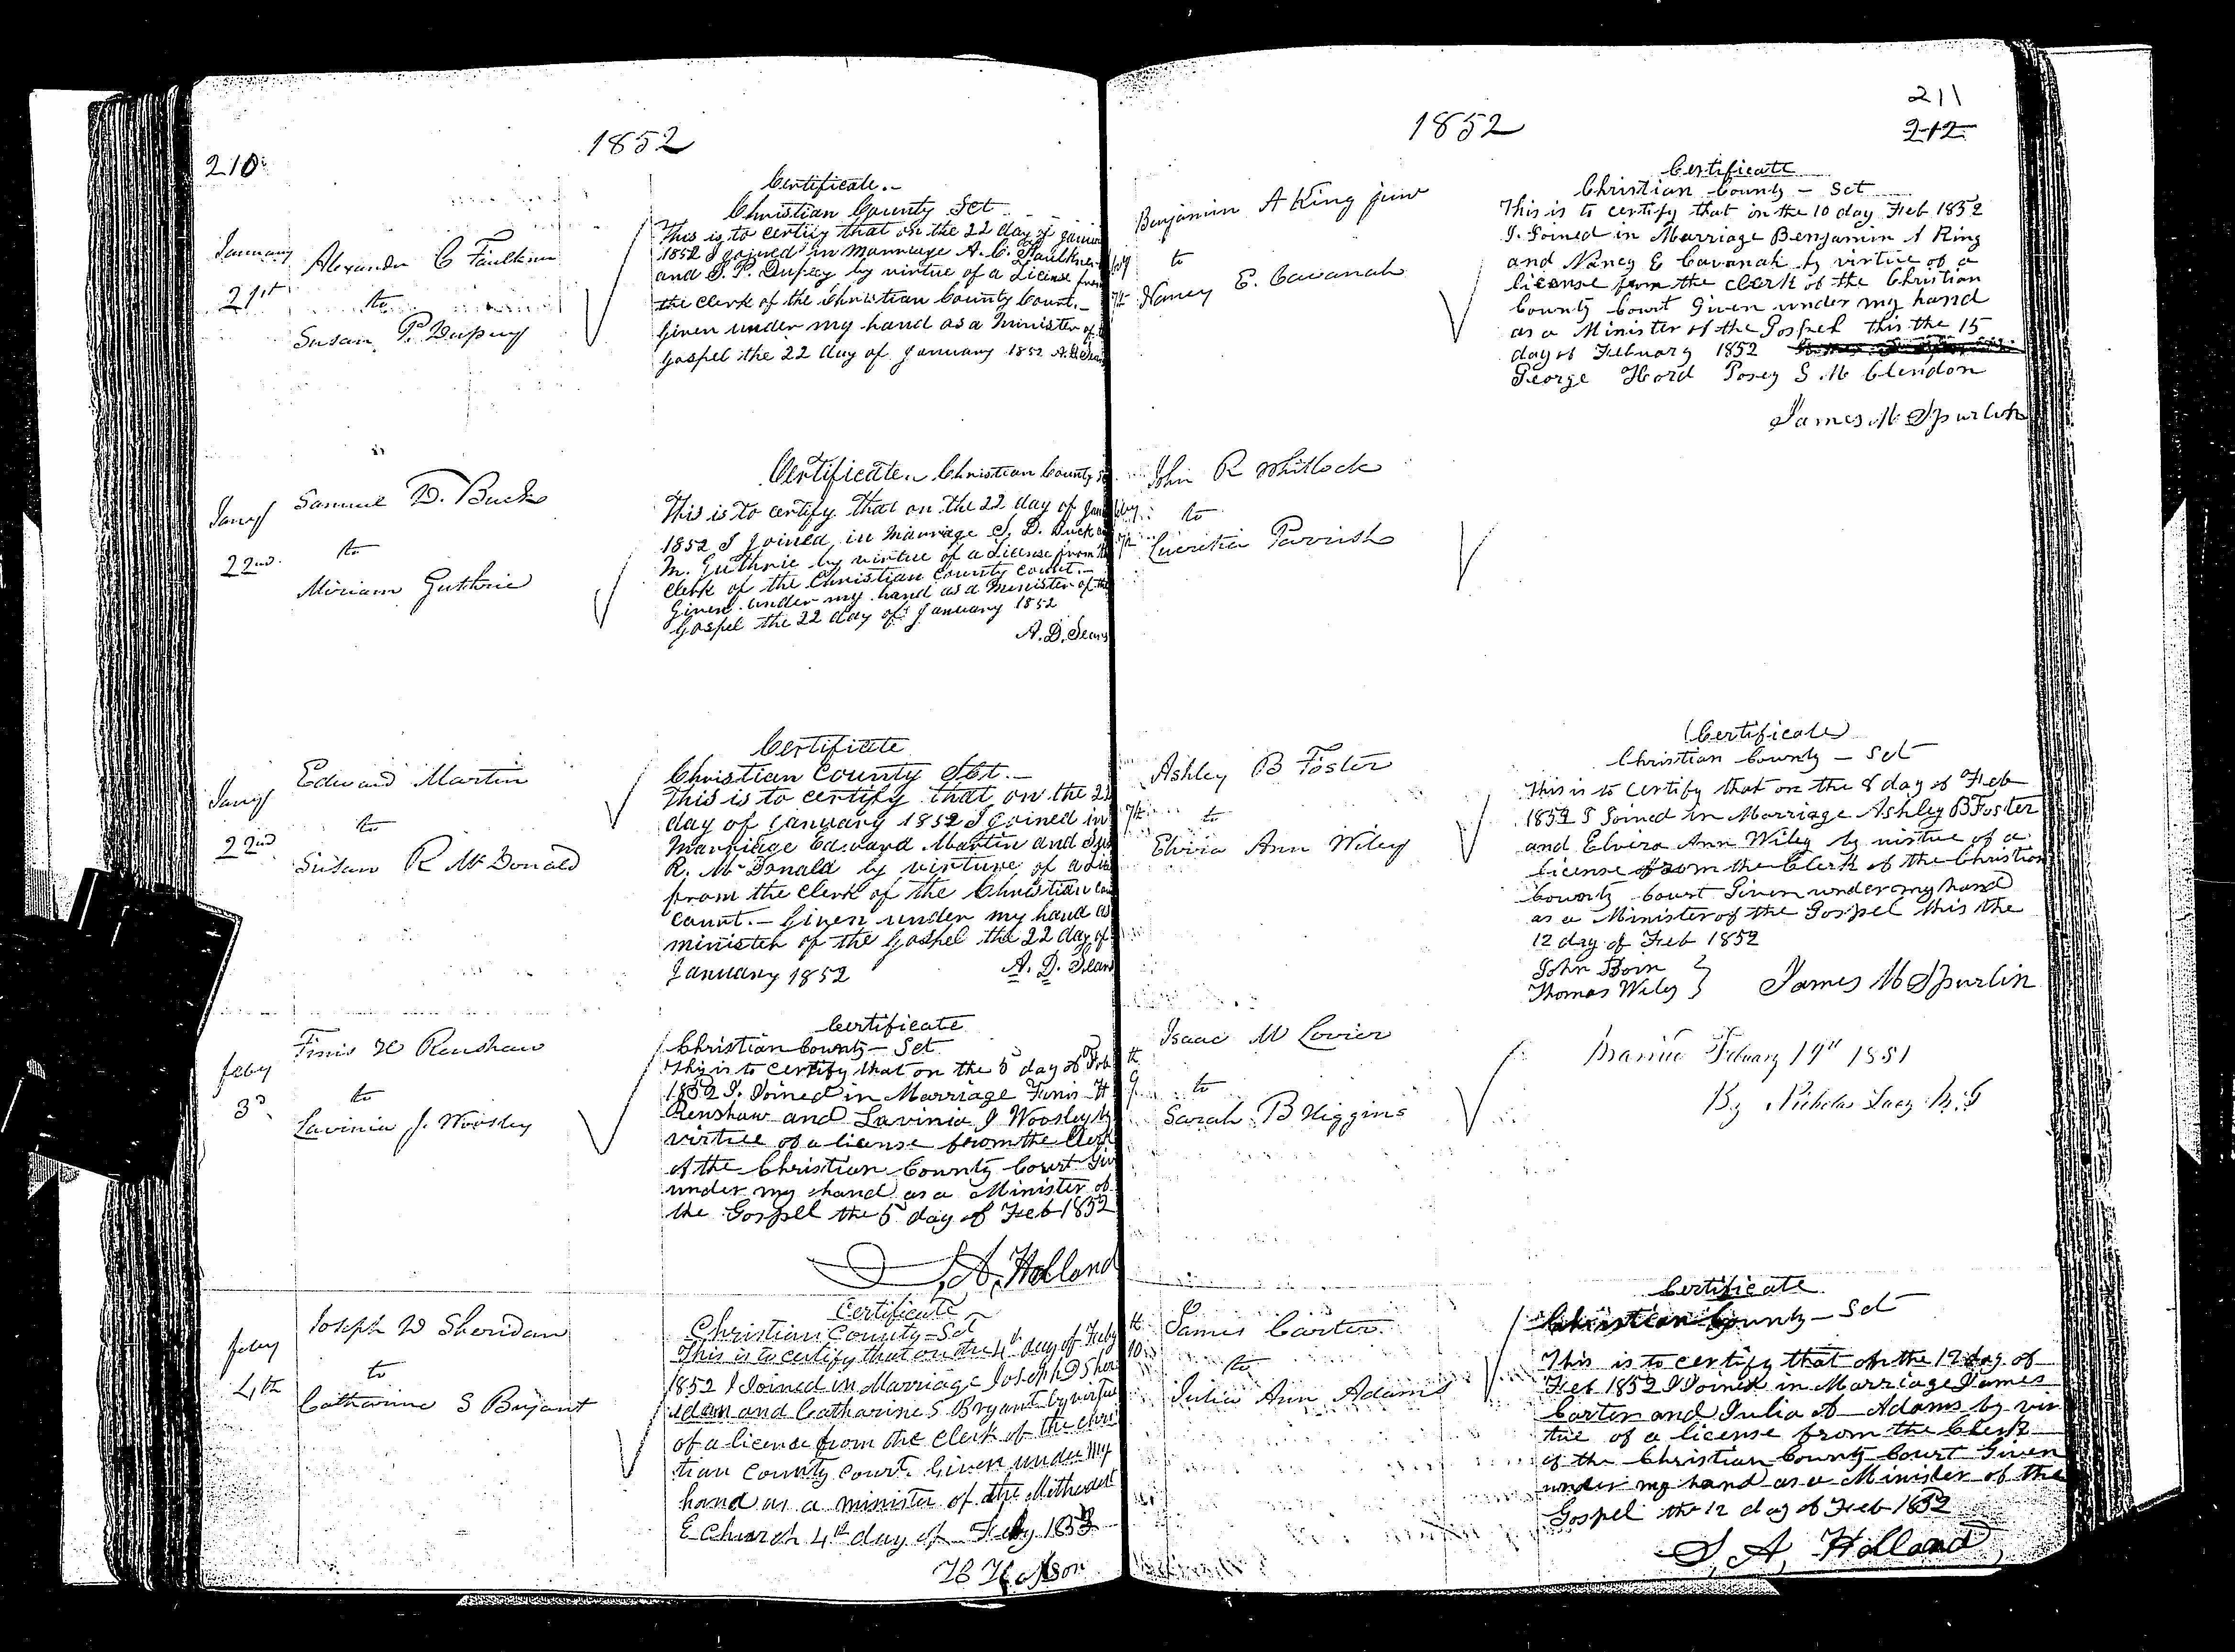 210
1852
January
21st
Alexander C Faulkner
to
Susan P. Dupuy
Certificate.
Christian County Sct
This is to certify that on the 22 day of
1852 I joined in marriage A. C. Faulkner
and S. P. Dupuy by virtue of a License from
the Clerk of the Christian County Court.
Given under my hand as a minister of
Gospel the 22 day of January 1852
Jany
22nd
Samuel D. Buck
to
Miriam Guthrie
Certificate. Christian County
This is to certify that on the 22 day of
1852 I joined in marriage S. D. Buck
M. Guthrie by virtue of a License from
Clerk of the Christian County Court.
Given under my hand as a minister of the
Gospel the 22 day of January 1852
A. D. Sears
Jany
22nd
Edward Martin
to
Susan R McDonald
Certificate
Christian County Sct.
This is to certify that on the 22
day of January 1852 I joined in
marriage Edward Martin and
R. McDonald by virture of a
from the Clerk of the Christian
Court. Given under my hand as
minister of the Gospel the 22 day of
January 1852 A. D. Sears
Feby
3d
Finis H Renshaw
to
Lavinia J. Woosley
Certificate
Christian County Sct
This is to certify that on the 5 day of Feb
1852 I. Joined in Marriage Finis H
Renshaw and Lavinia J Woosley by
virtue of a license from the Clerk
of the Christian County Court
under my hand as a Minister of
the Gospell the 5 day of Feb 1852
S. A. Holland
Feby
4th
Joseph D Sheridan
to
Catharine S Bryant
Certificate
Christian County Sct
This is to certify that on the 4th day of Feby
1852 I Joined in Marriage Joseph D
and Catharine S Bryant by virtue
of a license from the Clerk of the Chris
tian County Court. Given under my
hand as a minister of the Methodist
E Church 4th day of Feby
1852
211
212
Benjamin A King junr
to
Nancy E. Cavanah
7th
Certificate
Christian County - Sct
This is to certify that on the 10 day Feb 1852
I. Joined in Marriage Benjamin A King
and Nancy E Cavanah by virtue of a
license from the Clerk of the Christian
County Court Given under my hand
as a Minister of the Gospel this the 15
day of Febuary 1852
George Hord Posey S. M Clendon
James M Spurlin
John R Whitlock
to
7th Lucretia Parrish
Ashley B Foster
7th to
Elvira Ann Wiley
Certificate
Christian County - Sct
This is to certify that on the 8 day of Feb
1852 I Joined in Marriage Ashley B Foster
and Elvira Ann Wiley by virtue of a
license from the Clerk of the Christian
County Court Given under my hand
as a Minister of the Gospel this the
12 day of Feb 1852
John
Thomas Wiley } James M Spurlin
Isaac M Lovier
9 to
Sarah B Higgins
February 19th 1851
By Nicholas Lacy M. G
James Carter
10 to
Julia Ann Adams
Certificate
Christian County - Sct
This is to certify that on the 12 day of
Feb 1852 I Joined in Marriage James
Carter and Julia A Adams by vir
tue of a license from the Clerk
of the Christian County Court Given
under my hand as a Minister of the
Gospel the 12 day of Feb 1852
S. A. Holland